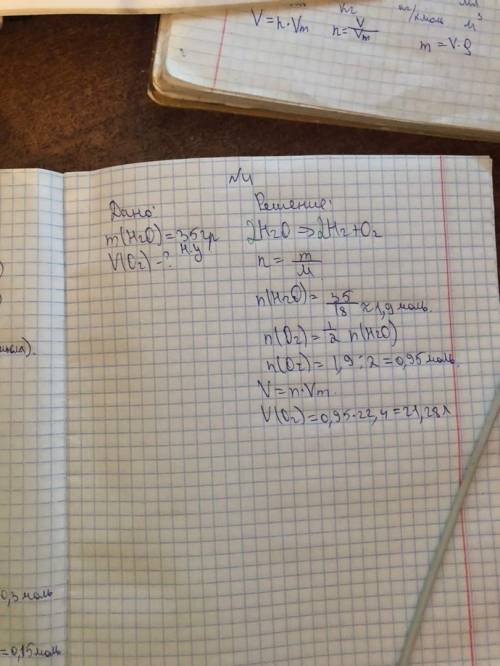 V=n·Vm n=V/Vm кг/кмоль м³
m=V·ρ
№4
Дано:
m(H2O)=35гр
н.у
V(O2)-?
Решение:
2H2O→2H2+O2
n=m/M
n(H2O)=35/18≈1,9моль.
n(O2)=1/2 n(H2O)
n(O2)=1,9:2=0,95моль.
V=n·Vm.
V(O2)=0,95·22,4=21,28л
0,3моль
=0,15моль